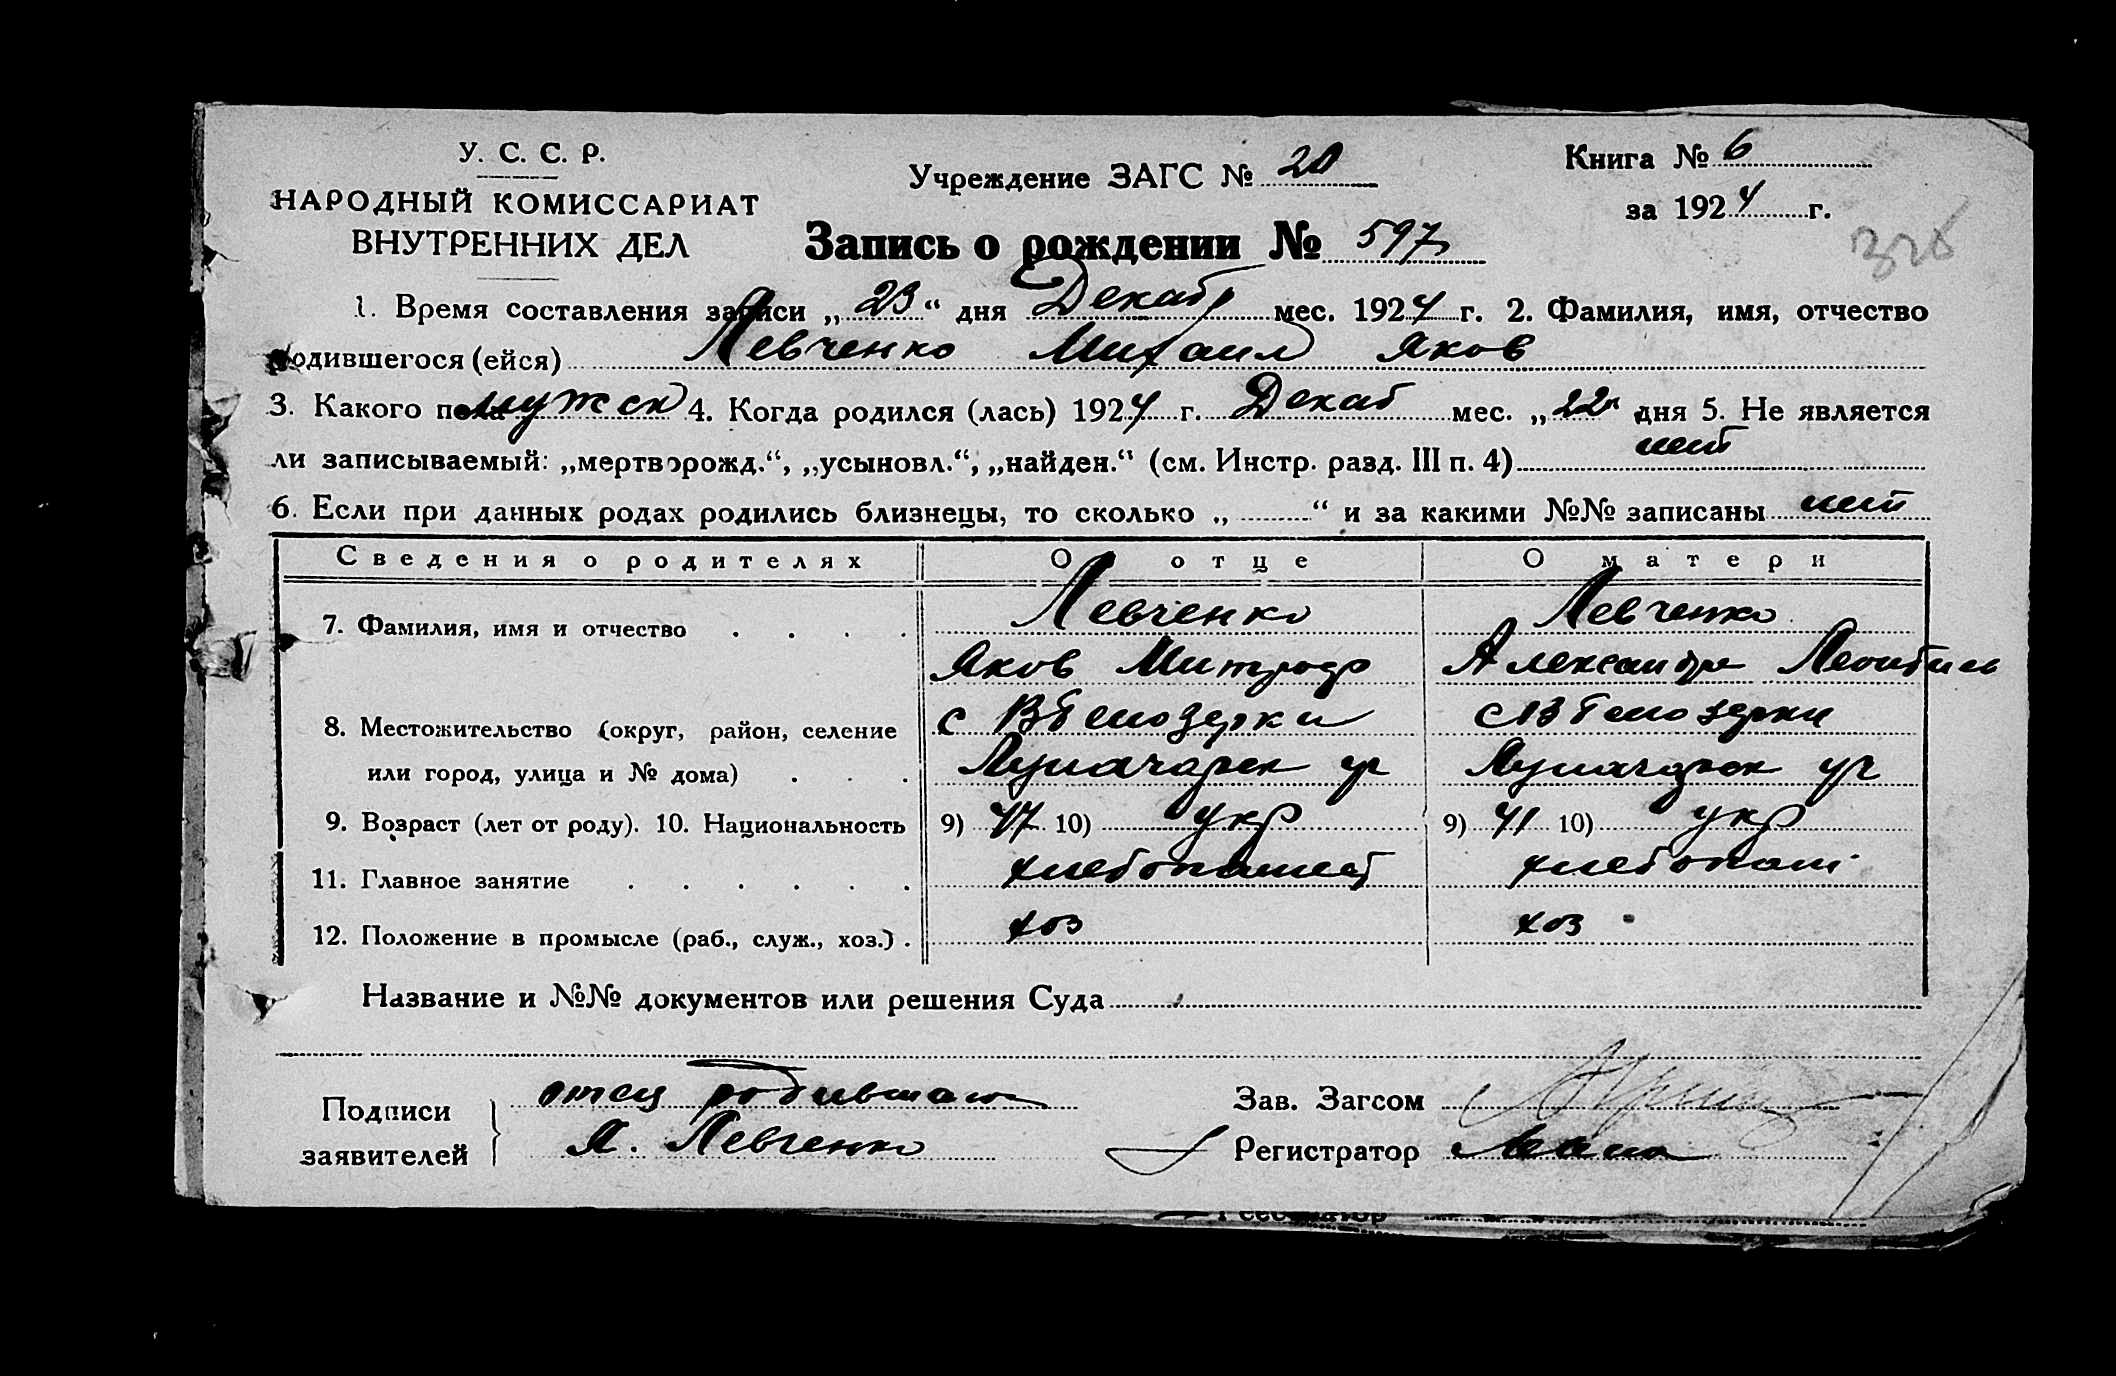 У. С. С. Р.
НАРОДНЫЙ КОМИССАРИАТ
ВНУТРЕННИХ ДЕЛ
Учреждение ЗАГС № 20
Книга № 6
за 1924 г.
Запись о рождении № 597
326
1. Время составления записи „23“ дня Декабр мес. 1924 г. 2. Фамилия, имя, отчество
родившегося (ейся) Левченко Михаил Яков
3. Какого пола мужск 4. Когда родился (лась) 1924 г. Декаб мес. „22“ дня 5. Не является
ли записываемый: „мертворожд.“, „усыновл.“, „найден.“ (см. Инстр. разд. III п. 4) нет
6. Если при данных родах родились близнецы, то сколько „ “ и за какими №№ записаны нет
Сведения о родителях О отце О матери
7. Фамилия, имя и отчество Левченко Левченко
Яков Митроф Александра
8. Местожительство (округ, район, селение с ВБелозерки с ВБелозерки
или город, улица и № дома) Луначарск ул Луначарск ул
9. Возраст (лет от роду). 10. Национальность 9) 47 10) укр 9) 41 10) укр
11. Главное занятие хлебопашец хлебопаш
12. Положение в промысле (раб., служ., хоз.) хоз хоз
Название и №№ документов или решения Суда
Подписи заявителей
отец
Я. Левченко
Зав. Загсом
Регистратор